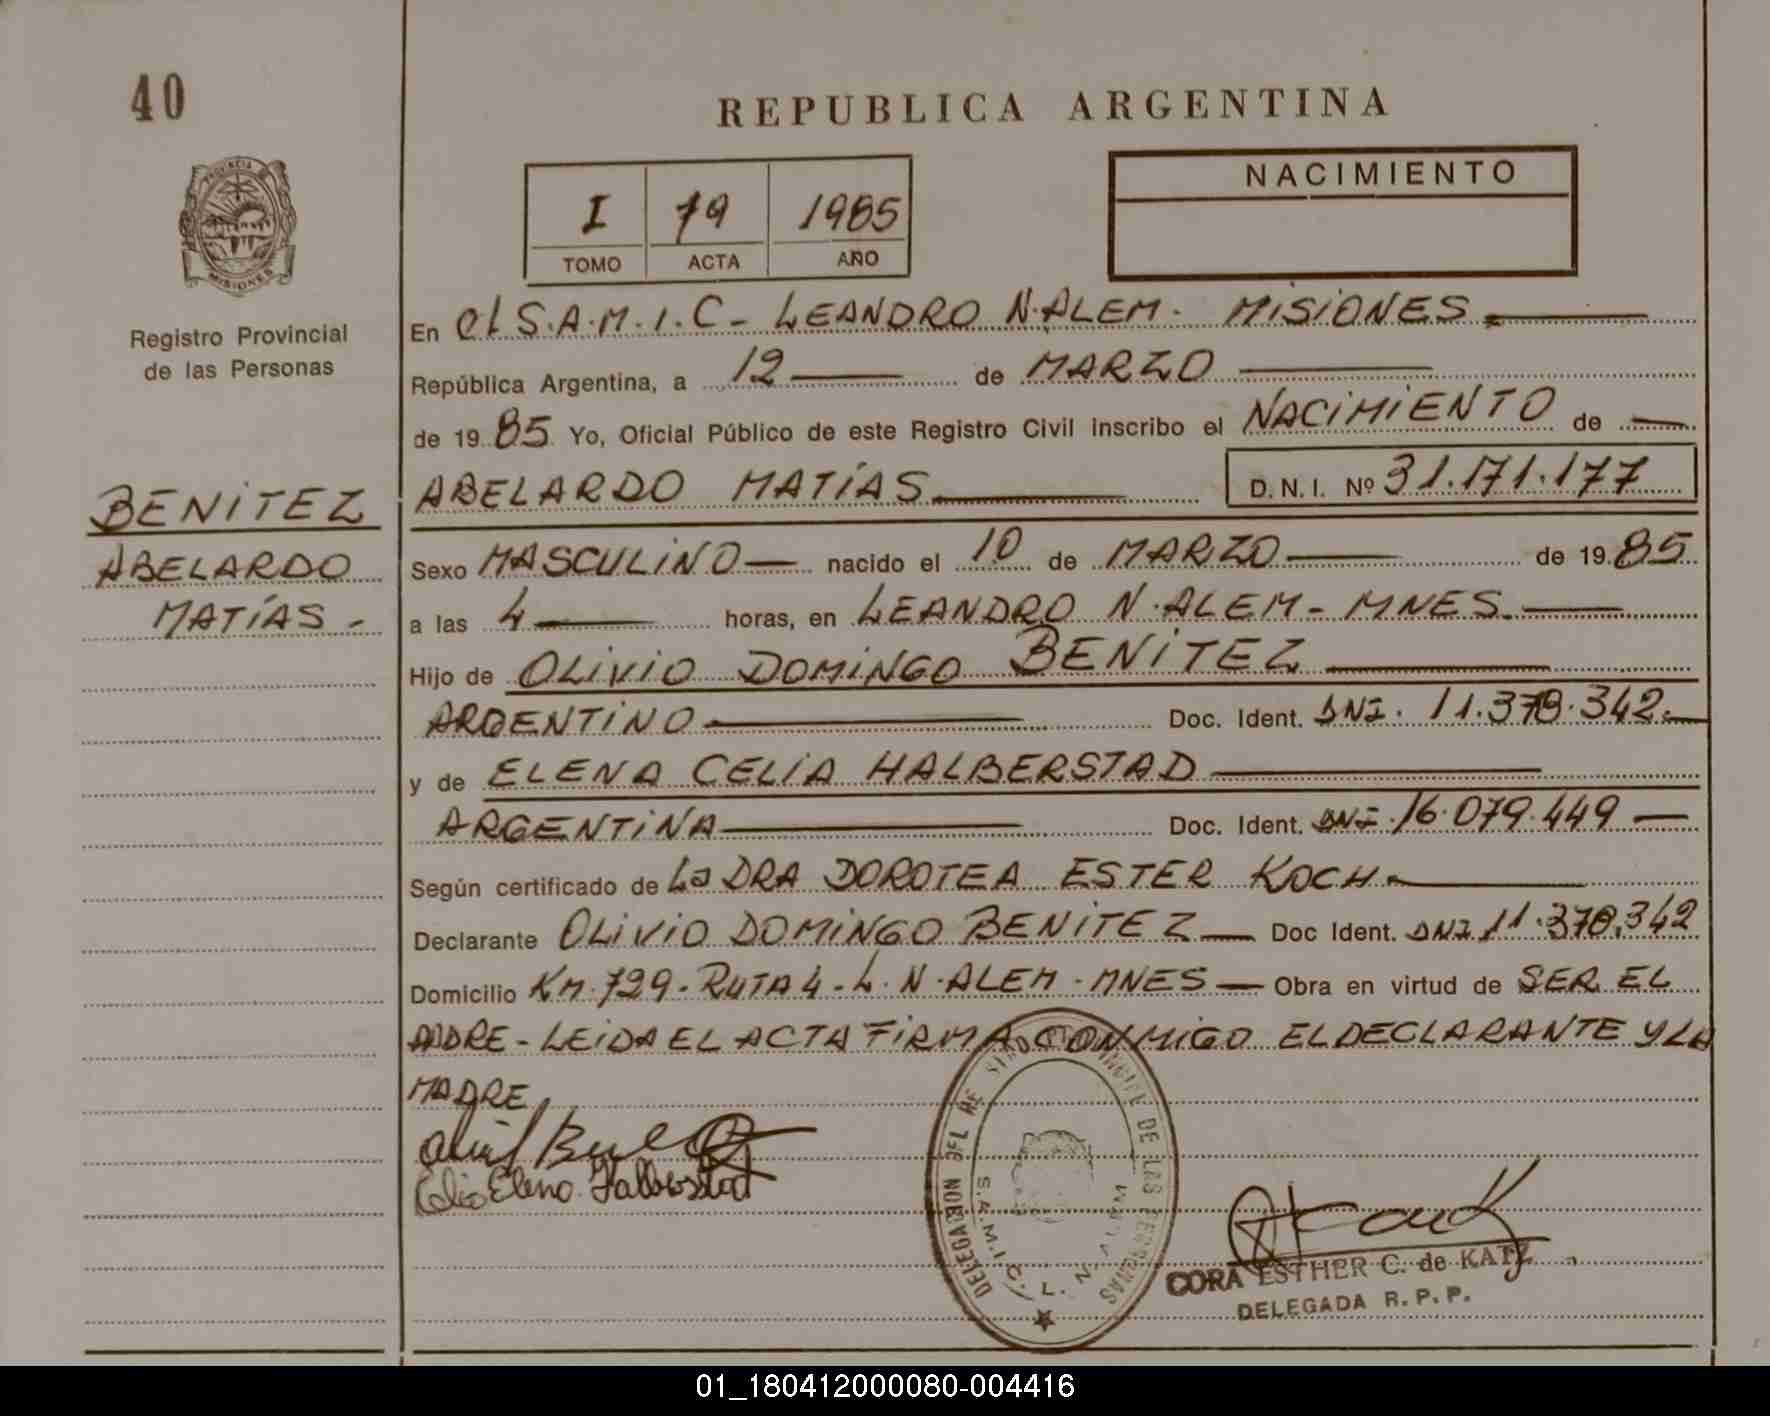 40
REPUBLICA ARGENTINA
NACIMIENTO
I 79 1985
TOMO ACTA AÑO
PROVINCIA
MISIONES
Registro Provincial
de las Personas
BENITEZ
ABELARDO
MATÍAS -
En el S.A.M.I.C - LEANDRO N. ALEM - MISIONES
República Argentina, a 12 de MARZO
de 19 85 Yo, Oficial Público de este Registro Civil inscribo el NACIMIENTO de
ABELARDO MATÍAS D.N.I. Nº 31.171.177
Sexo MASCULINO nacido el 10 de MARZO de 19 85
a las 4 horas, en LEANDRO N. ALEM - MNES.
Hijo de OLIVIO DOMINGO BENITEZ
ARGENTINO Doc. Ident. DNI. 11.378.342.
y de ELENA CELIA HALBERSTAD
ARGENTINA Doc. Ident. DNI. 16.079.449
Según certificado de La DRA DOROTEA ESTER KOCH
Declarante OLIVIO DOMINGO BENITEZ Doc Ident. DNI 11.378.342
Domicilio KM. 729 - RUTA 4 - L. N. ALEM - MNES Obra en virtud de SER EL
PADRE - LEIDA EL ACTA FIRMA CONMIGO EL DECLARANTE Y LA
MADRE
Elena Halberstad
DELEGADO DEL REGISTRO PROVINCIAL DE LAS PERSONAS
S.A.M.I.C. L. N. ALEM
CORA ESTHER C. de KATZ
DELEGADA R.P.P.
01_180412000080-004416